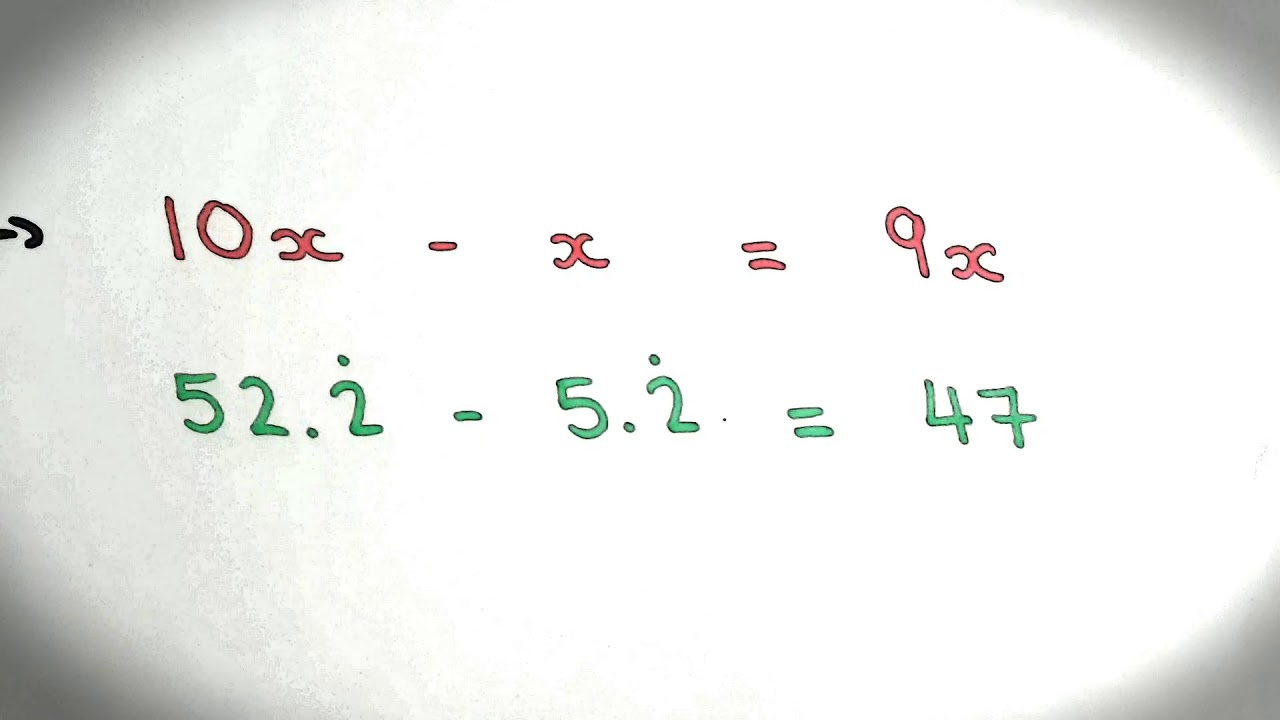 → 10x - x = 9x
52.2̇ - 5.2̇ = 47